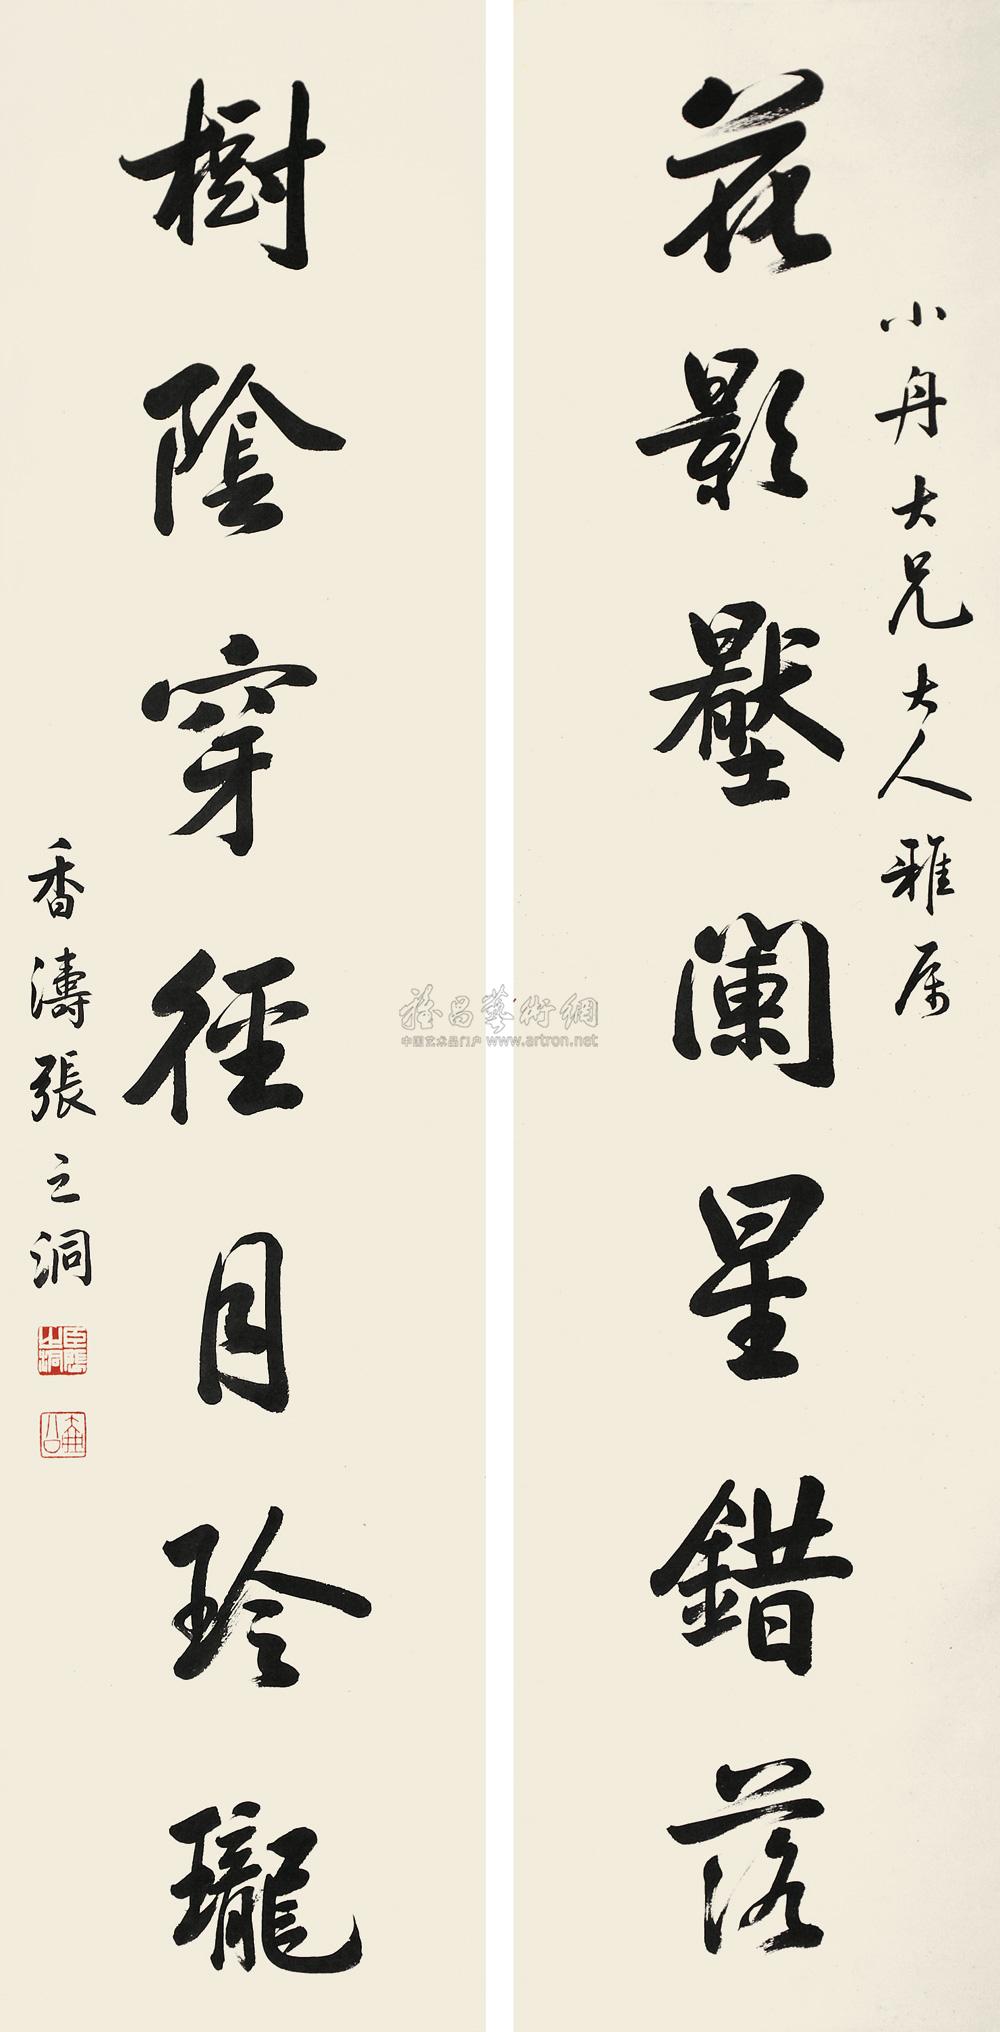 小舟大兄大人雅属
花影壓闌星錯落
樹陰穿徑月玲瓏
香濤張之洞
雅昌藝術網
中国艺术品门户 www.artron.net